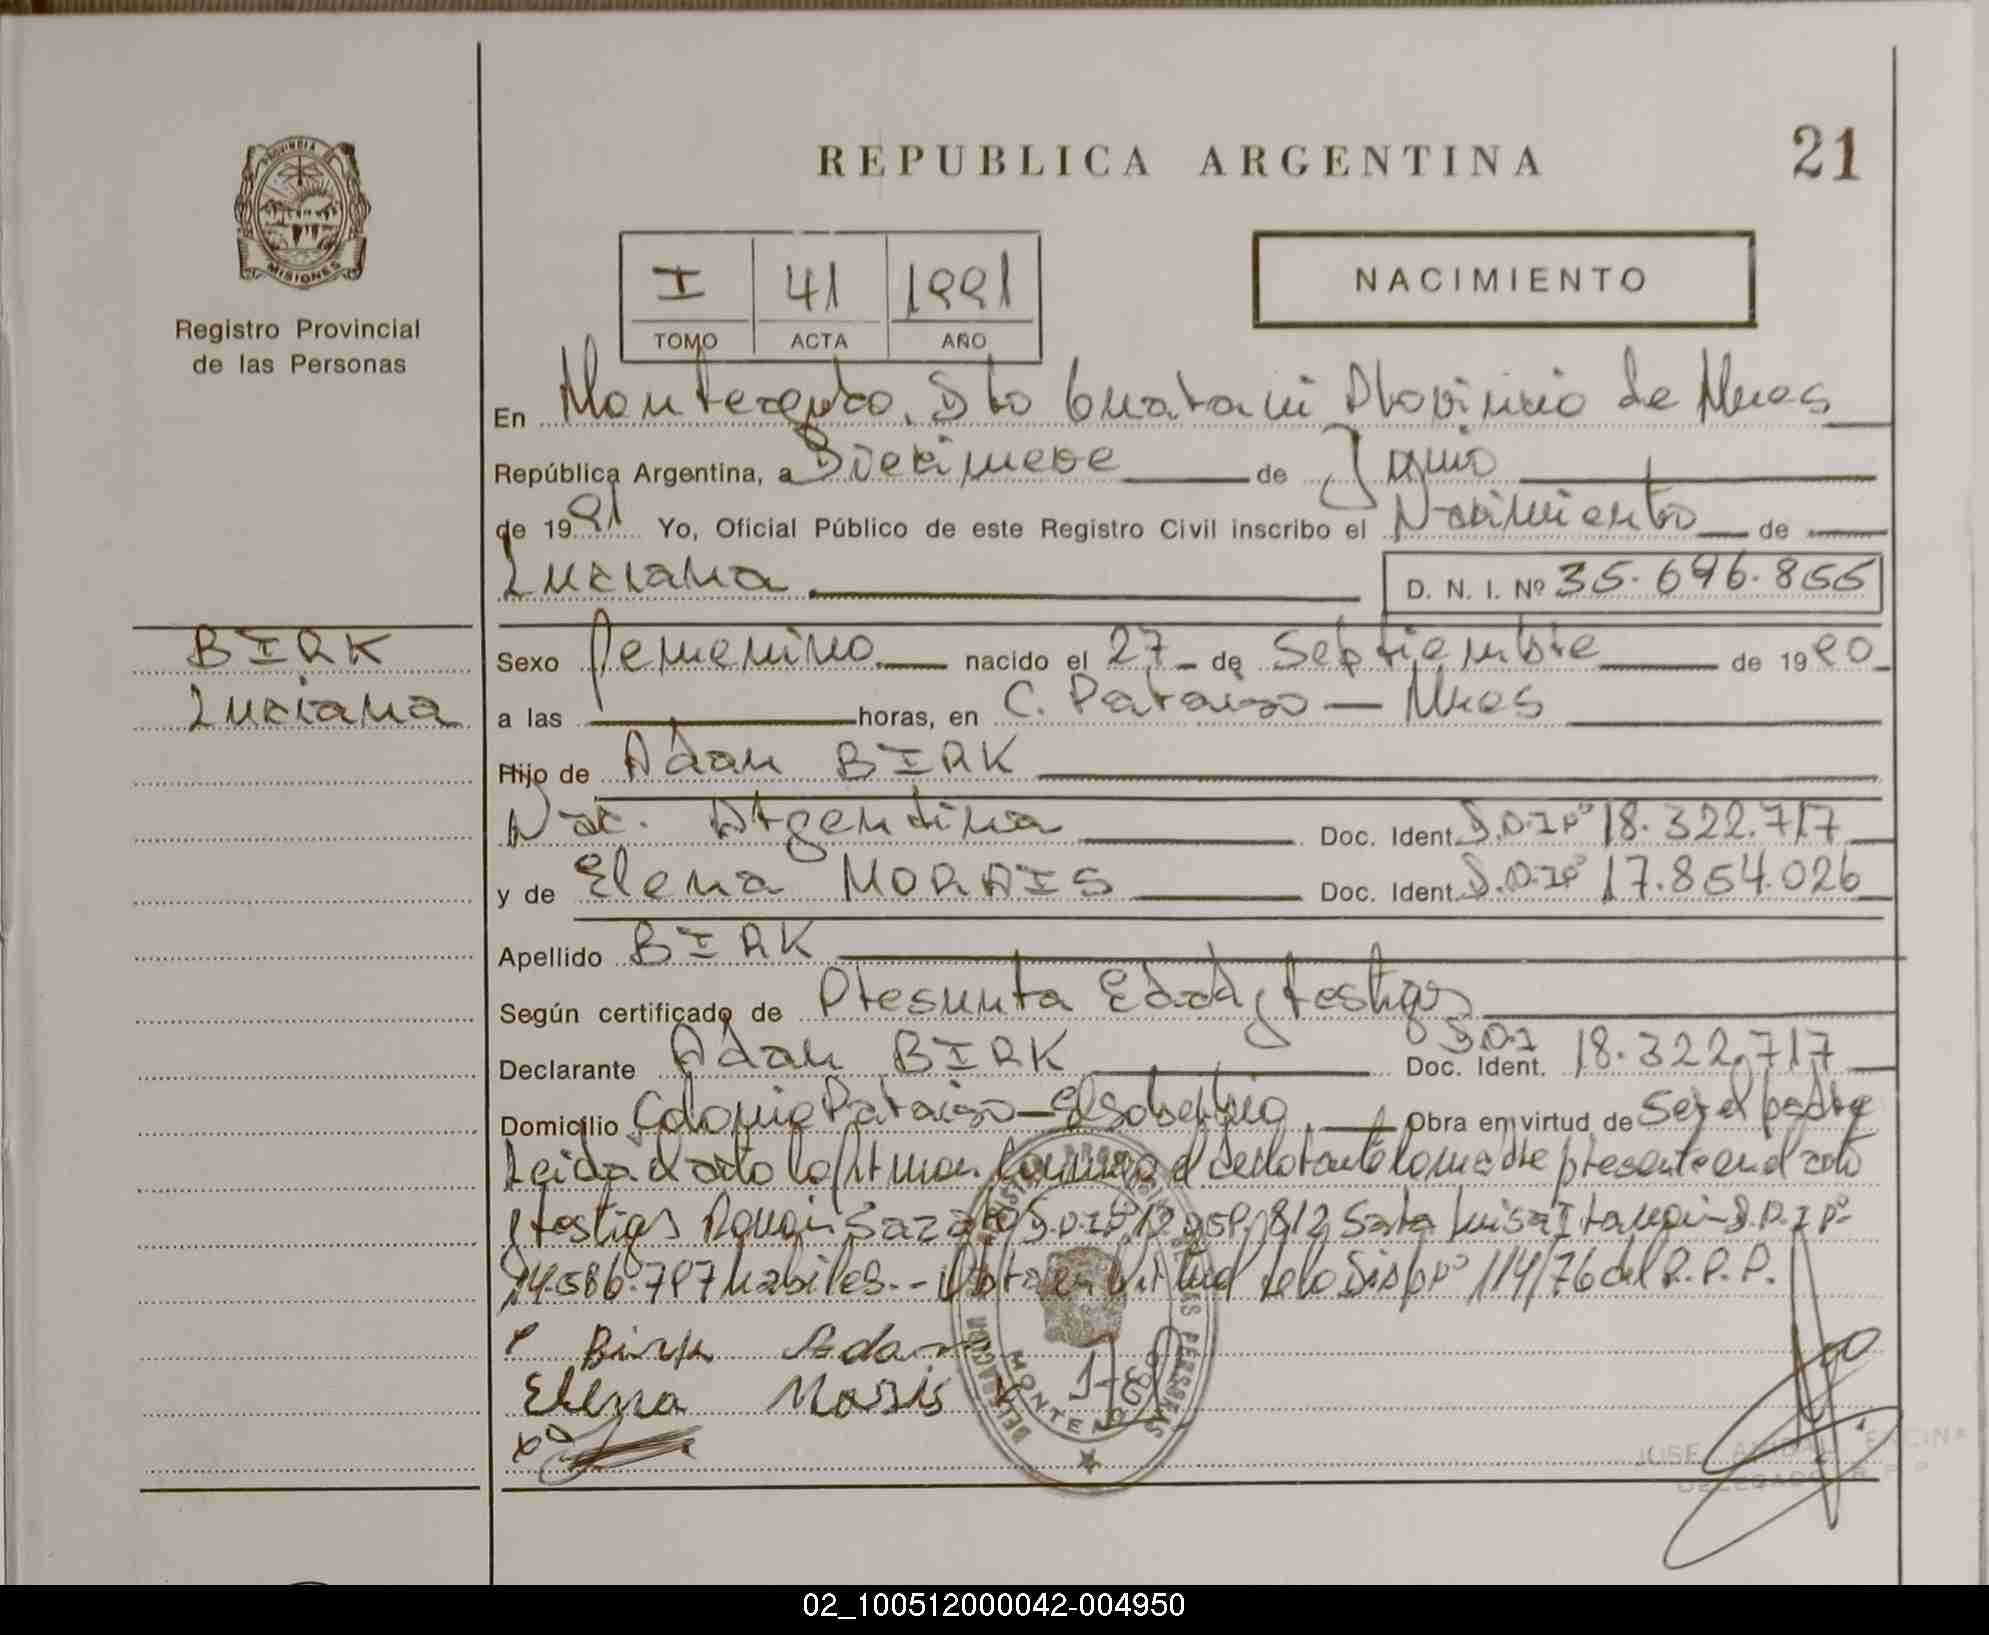 PROVINCIA DE
MISIONES
Registro Provincial
de las Personas
REPUBLICA ARGENTINA
21
I 41 1991
TOMO ACTA AÑO
NACIMIENTO
En Dto Guarani Provincia de Mnes
República Argentina, a Diecinueve de Junio
de 1991 Yo, Oficial Público de este Registro Civil inscribo el Nacimiento de
Luciana D. N. I. Nº 35.696.855
BIRK
Luciana
Sexo femenino nacido el 27 de Septiembre de 1990
a las horas, en C. Paraiso - Mnes
Hijo de Adan BIRK
Nac. Argentina Doc. Ident. D.N.I Nº 18.322.717
y de Elena MORAIS Doc. Ident. D.N.I Nº 17.854.026
Apellido BIRK
Según certificado de Presunta Edad y testigos
Declarante Adan BIRK Doc. Ident. D.N.I 18.322.717
Domicilio Colonia Paraiso - El Soberbio Obra en virtud de Ser el padre
Leida el acta la firman conmigo el declarante la madre presente en el acto
y testigos Ramon D.N.I Nº 812 Luisa D.N.I Nº
14.586.797 habiles.- en virtud de la Disp Nº 114/76 del R.P.P.
Birk Adan
Elena Morais
DELEGACION
MONTEAGUDO
DE LAS PERSONAS
JOSE ANIBAL ENCINA
DELEGADO R. P. P.
02_100512000042-004950